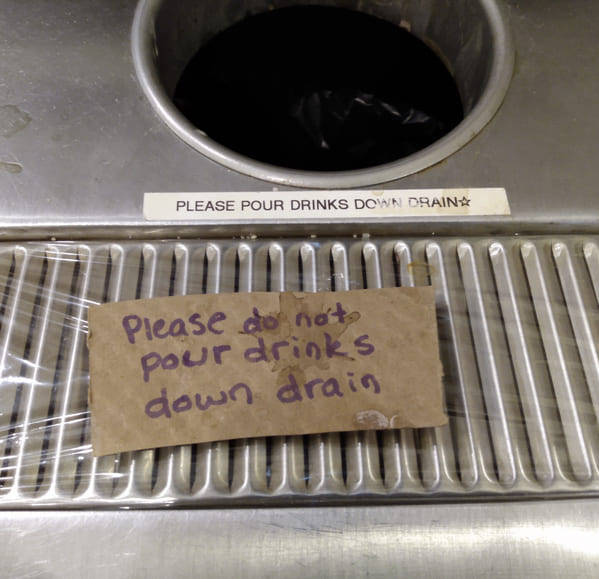 PLEASE POUR DRINKS DOWN DRAIN☆
Please do not
pour drinks
down drain